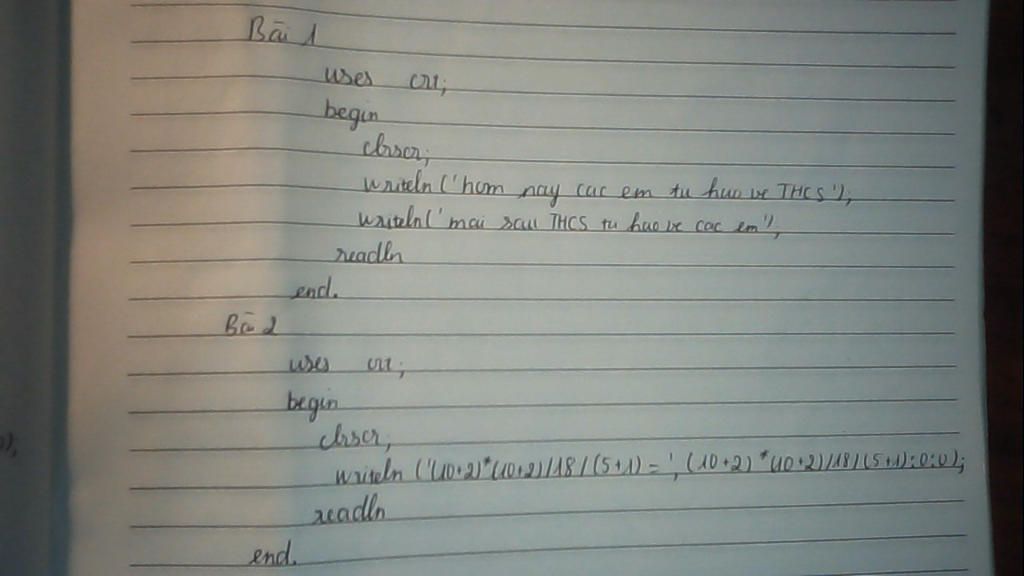 Bài 1
uses crt;
begin
clrscr;
writeln('hom nay cac em tu hao ve THCS');
writeln('mai sau THCS tu hao ve cac em');
readln
end.
Bài 2
uses crt;
begin
clrscr;
writeln('(10+2)*(10+2)/18/(5+1)=',(10+2)*(10+2)/18/(5+1):0:0);
readln
end.
);